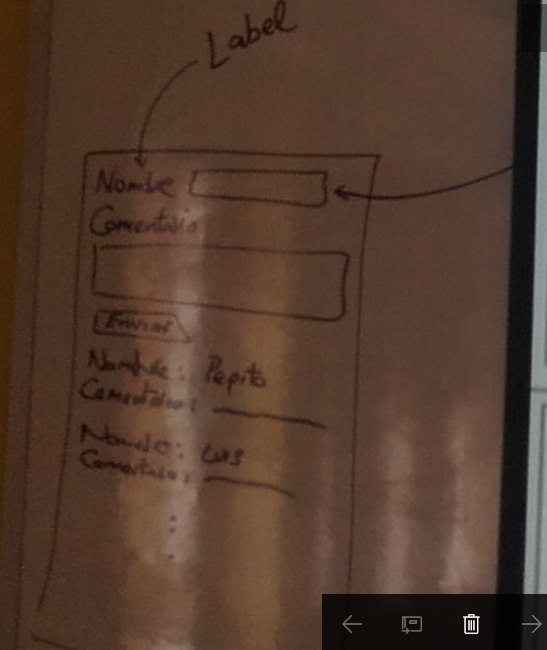 Label
Nombre
Comentario
Enviar
Nombre: Pepito
Comentario:
Nombre: Luis
Comentario: